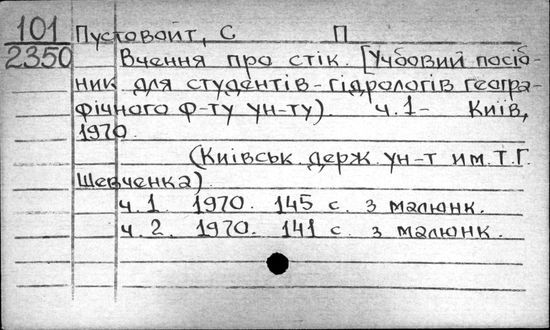 101 Пустовойт, С П
2350 Вчення про стік. [Учбовий посіб-
ник для студентів-гідрологів геогра-
фічного ф-ту ун-ту). ч.1- Київ,
1970.
(Київськ. держ. ун-т им. Т.Г.
Шевченка)
ч.1. 1970. 145 с. з малюнк.
ч.2. 1970. 141 с. з малюнк.